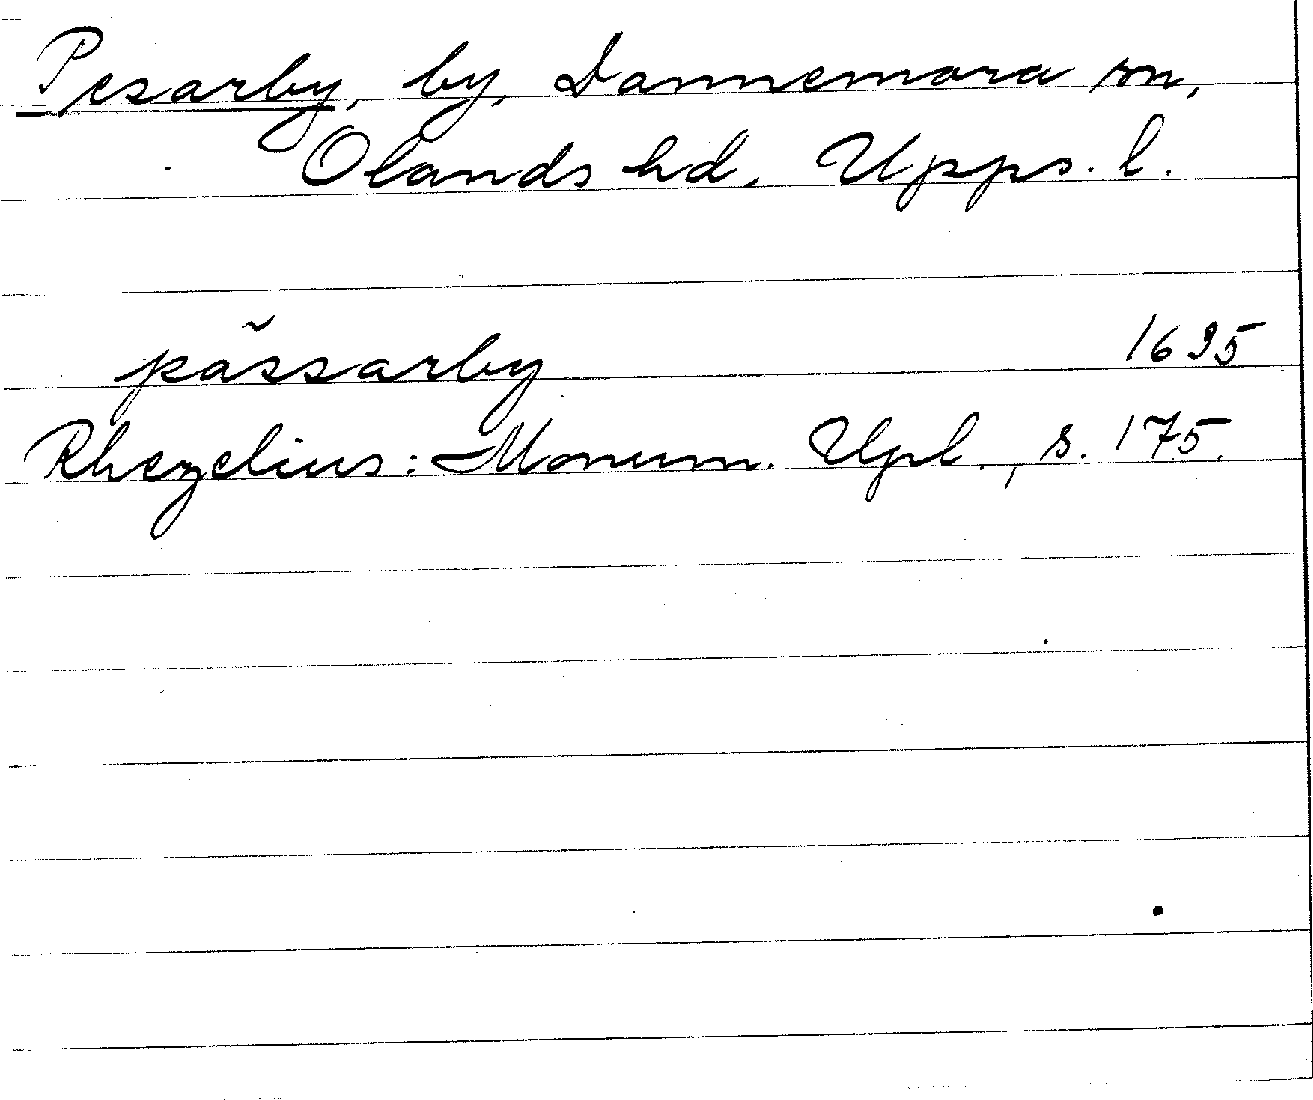 Pesarby, by, Dannemora sn,
Olands hd, Upps. l.
pässarby 1635
Rhezelius: Monum. Upl., s. 175.